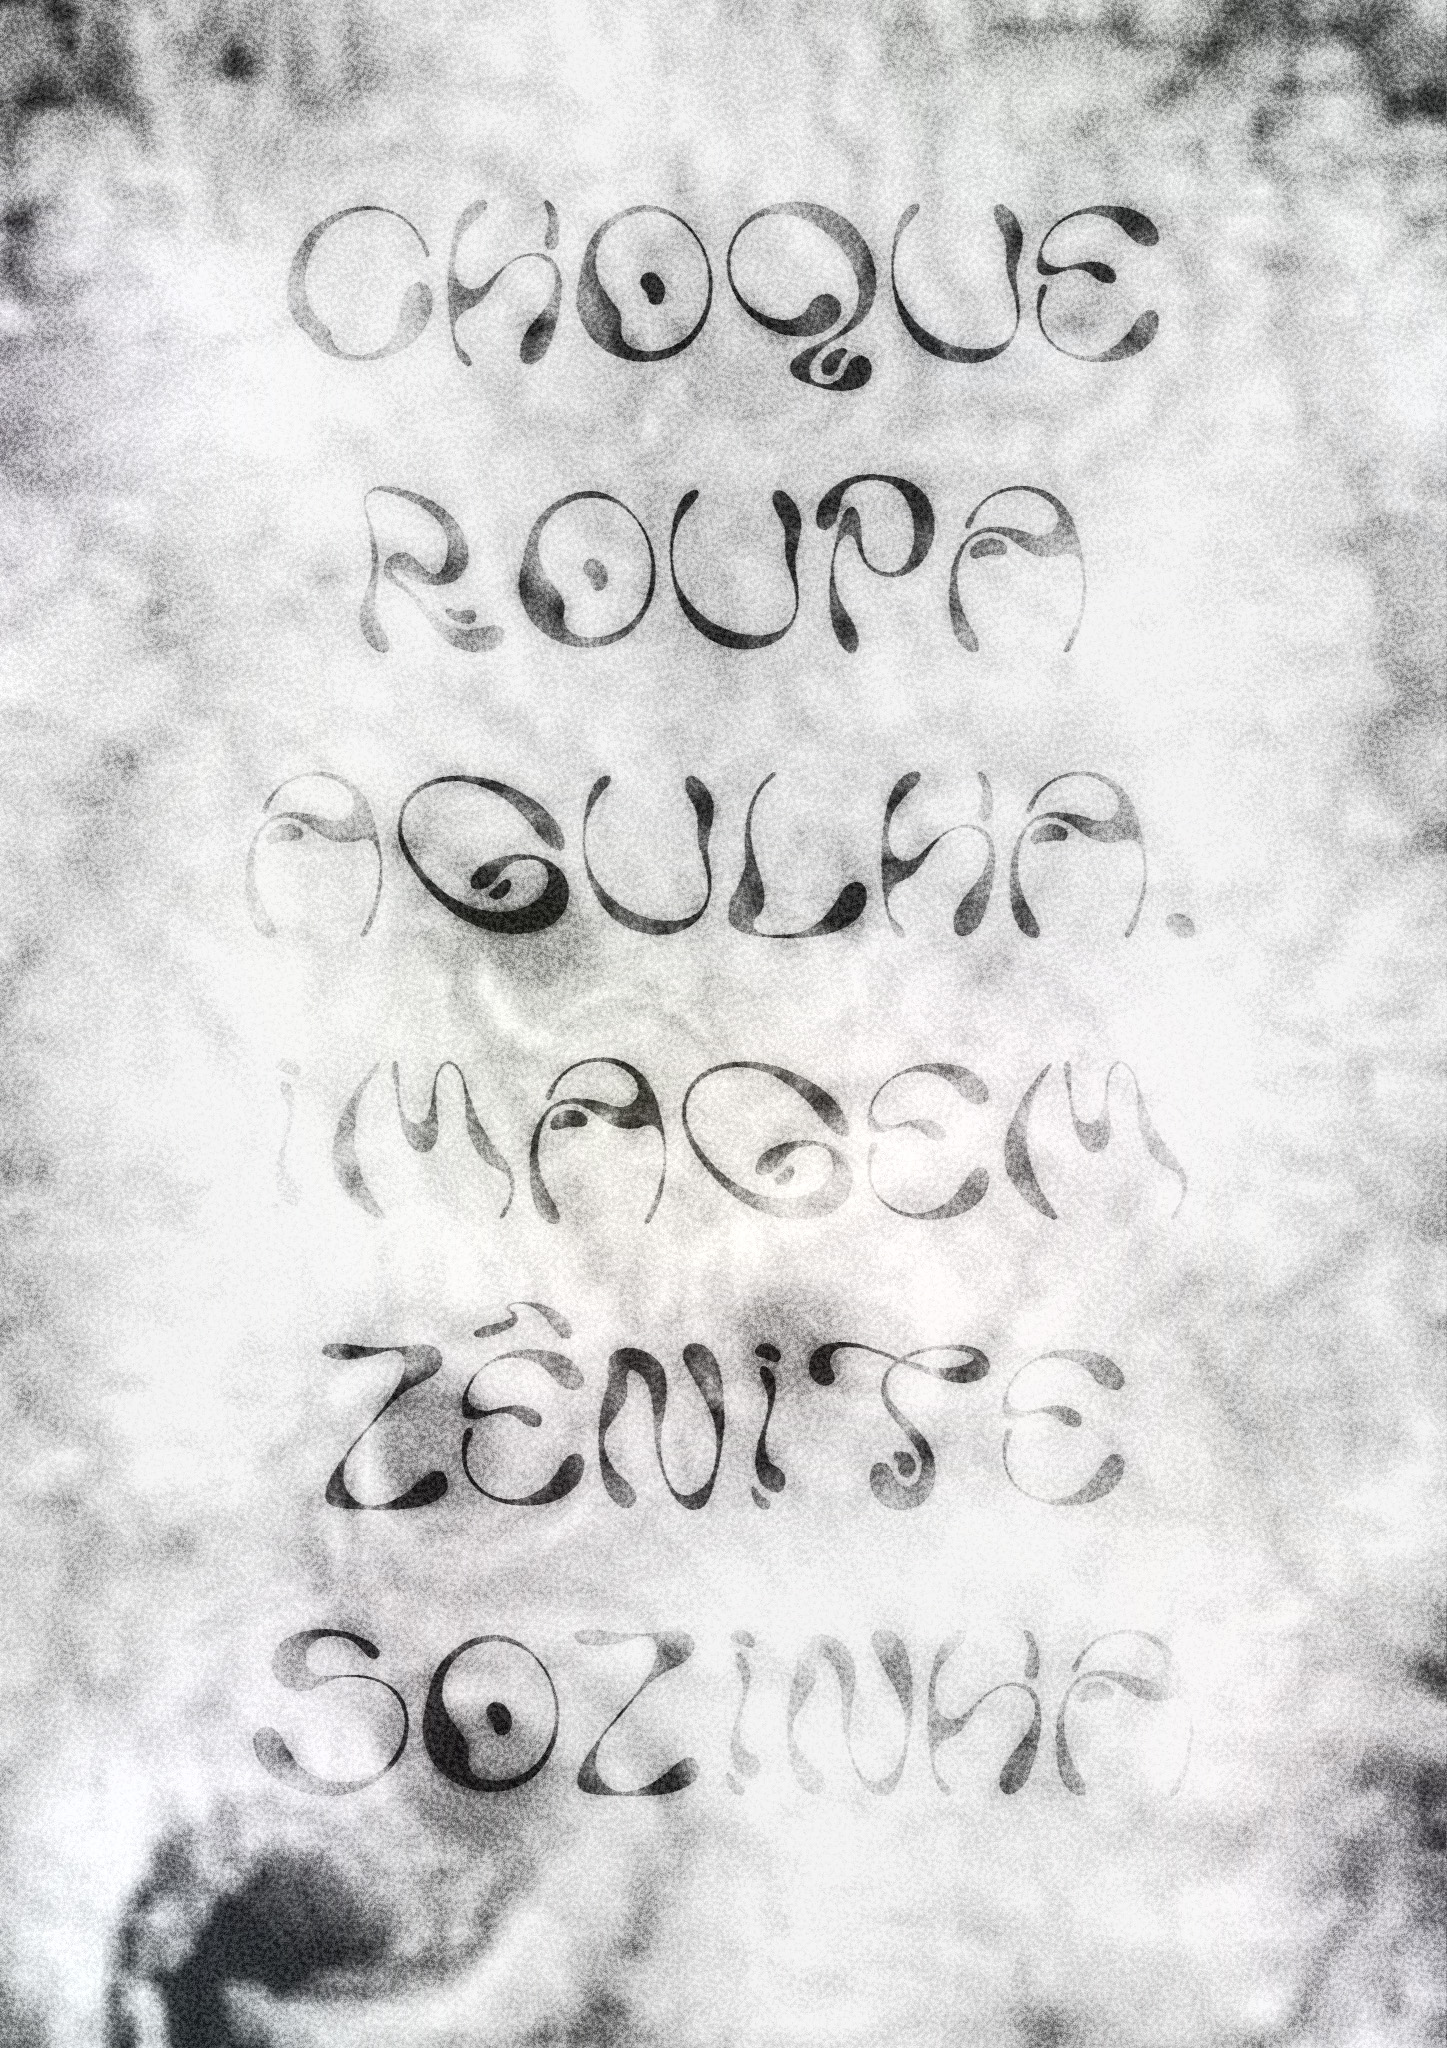 CHOQUE
ROUPA
AGULHA.
iMAGEM
ZÊNiTE
SOZiNHA